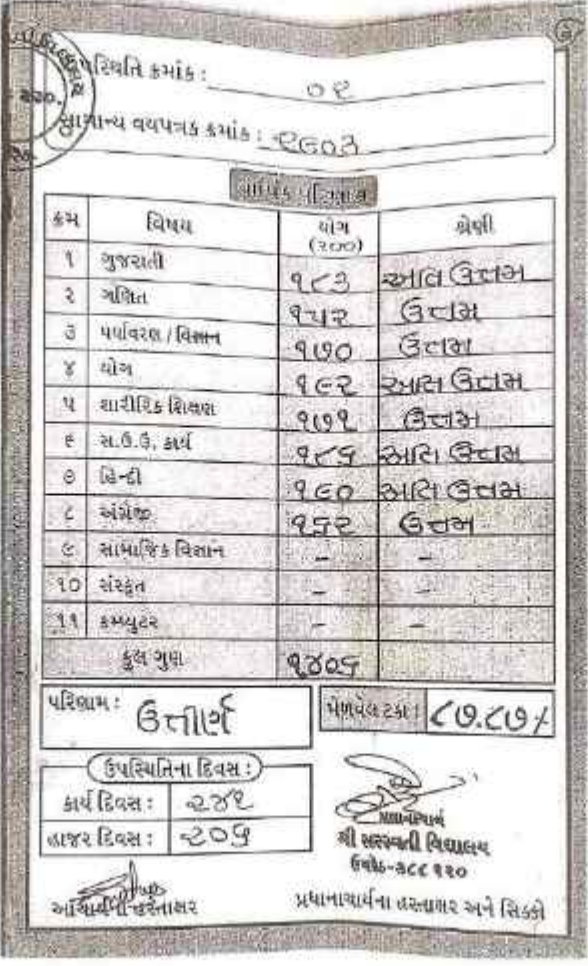 પસ્થિતિ ક્રમાંક :
સામાન્ય વયપત્રક ક્રમાંક : ૨૯૦૩
વાર્ષિક પરિણામ
ક્રમ વિષય યોગ (૨૦૦) શ્રેણી
૧ ગુજરાતી ૧૮૩ અતિ ઉત્તમ
૨ ગણિત ૧૫૨ ઉત્તમ
૩ પર્યાવરણ / વિજ્ઞાન ૧૭૦ ઉત્તમ
૪ યોગ ૧૯૨ અતિ ઉત્તમ
૫ શારીરિક શિક્ષણ ૧૭૧ ઉત્તમ
૬ સ.ઉ.ઉ. કાર્ય ૧૮૬ અતિ ઉત્તમ
૭ હિન્દી ૧૯૦ અતિ ઉત્તમ
૮ અંગ્રેજી ૧૬૨ ઉત્તમ
૯ સામાજિક વિજ્ઞાન - -
૧૦ સંસ્કૃત - -
૧૧ કમ્પ્યુટર - -
કુલ ગુણ ૧૪૦૬
પરિણામ : ઉત્તીર્ણ મેળવેલ ટકા : ૮૭.૮૭%
ઉપસ્થિતિના દિવસ :
કાર્ય દિવસ : ૨૪૧
હાજર દિવસ : ૨૦૬
પ્રધાનાચાર્ય
શ્રી સરસ્વતી વિદ્યાલય
૩૮૮ ૧૨૦
આચાર્યની હસ્તાક્ષર
પ્રધાનાચાર્યના હસ્તાક્ષર અને સિક્કો